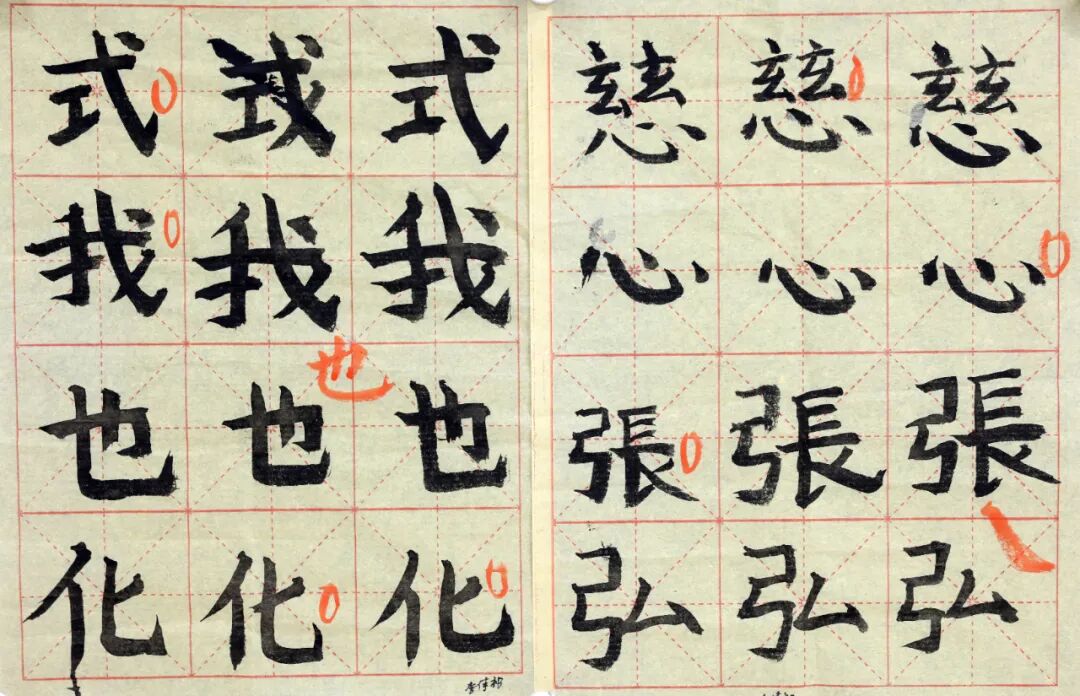 式 式 式 慈 慈 慈
我 我 我 心 心 心
也 也 也 張 張 張
也
化 化 化 弘 弘 弘